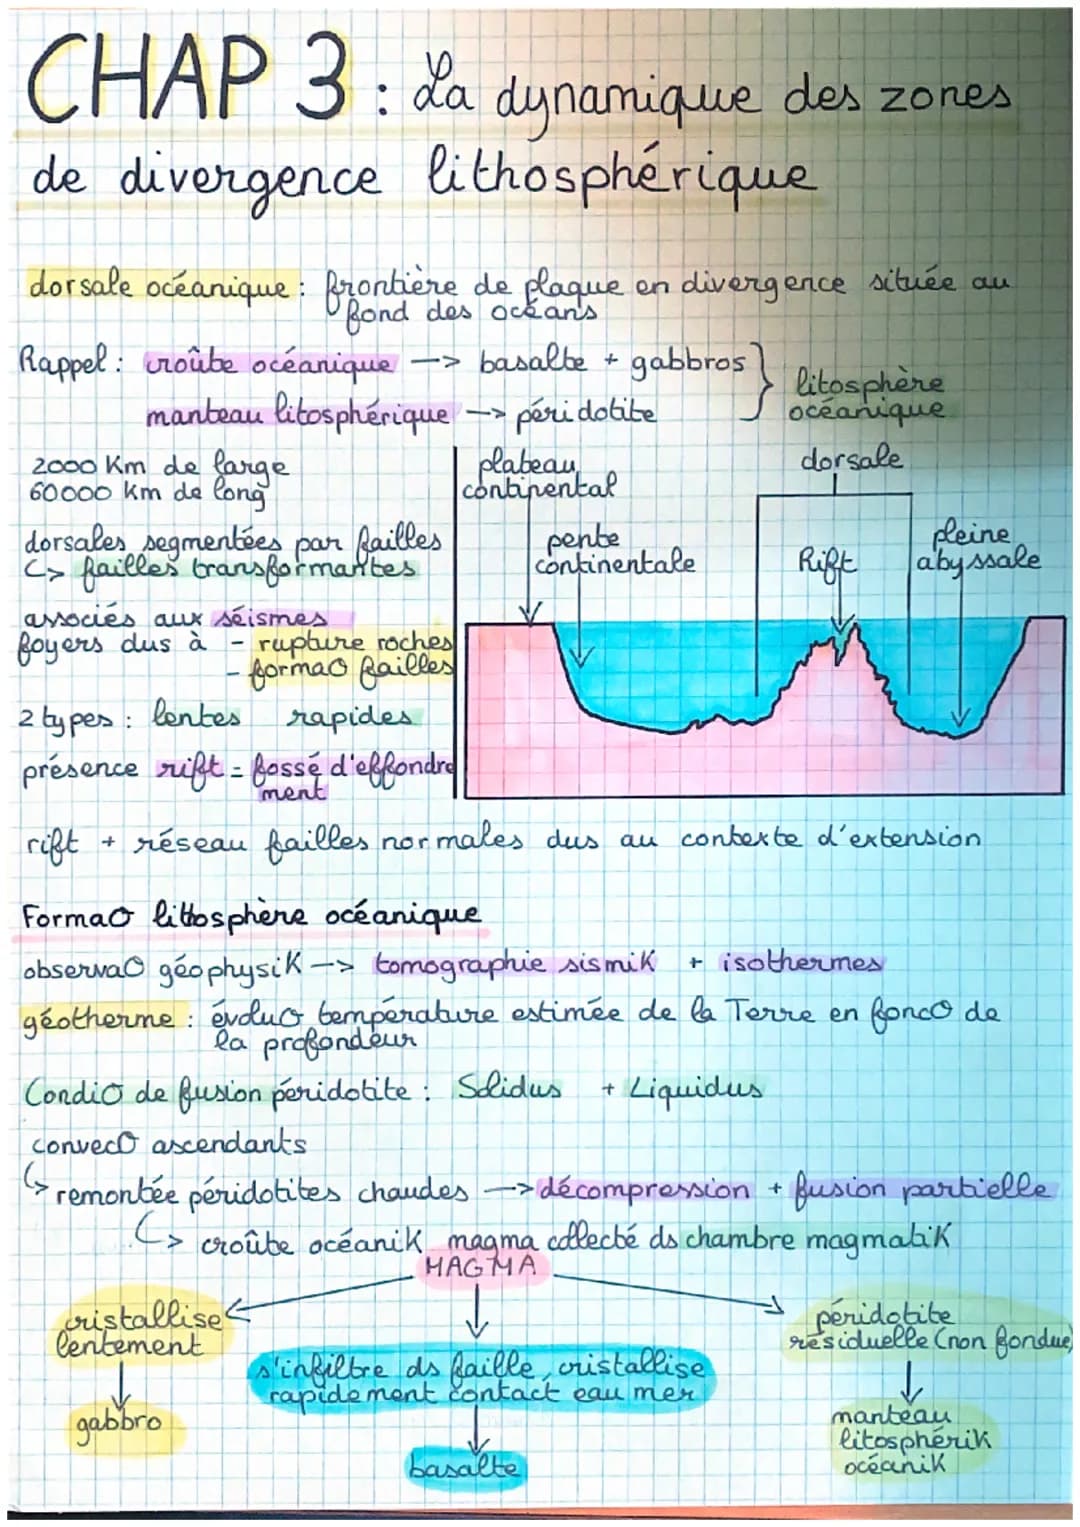 CHAP 3 : La dynamique des zones
de divergence lithosphérique
dorsale océanique : frontière de plaque en divergence située au
fond des océans
Rappel : croûte océanique -> basalte + gabbros
manteau litosphérique -> péridotite
litosphère
océanique
2000 Km de large
60000 Km de long
dorsales segmentées par failles
↳ failles transformantes
associés aux séismes
foyers dus à - rupture roches
- formaO failles
2 types : lentes rapides
présence rift = fossé d'effondre
ment
plateau
continental
pente
continentale
dorsale
Rift
pleine
abyssale
rift + réseau failles normales dus au contexte d'extension
FormaO littosphère océanique
observaO géophysiK -> tomographie sismiK + isothermes
géotherme : évoluO température estimée de la Terre en foncO de
la profondeur
CondiO de fusion péridotite : Solidus + Liquidus
convecO ascendants
↳ remontée péridotites chaudes -> décompression + fusion partielle
↳ croûte océaniK magma collecté ds chambre magmatiK
MAGMA
cristallise
lentement
gabbro
s'infiltre ds faille, cristallise
rapidement contact eau mer
basalte
péridotite
résiduelle (non fondue)
manteau
litosphériK
océaniK